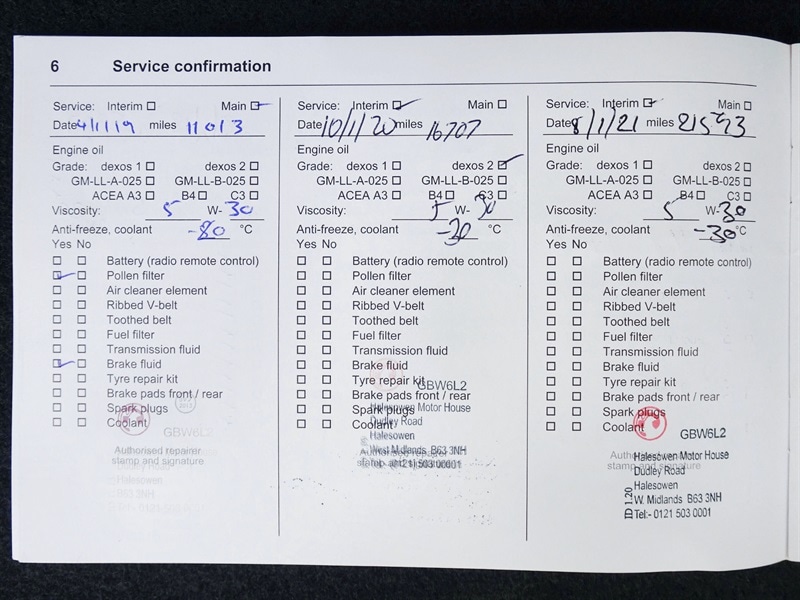 6 Service confirmation
Service: Interim Main
Date 4/1/19 miles 11013
Engine oil
Grade: dexos 1 dexos 2
GM-LL-A-025 GM-LL-B-025
ACEA A3 B4 C3
Viscosity: 5 W- 30
Anti-freeze, coolant °C
Yes No
Battery (radio remote control)
Pollen filter
Air cleaner element
Ribbed V-belt
Toothed belt
Fuel filter
Transmission fluid
Brake fluid
Tyre repair kit
Brake pads front / rear
Spark plugs
Coolant
GBW6L2
Authorised repairer
stamp and signature
Halesowen
B63 3NH
0121
Service: Interim Main
Date 10/1/20 miles 16707
Engine oil
Grade: dexos 1 dexos 2
GM-LL-A-025 GM-LL-B-025
ACEA A3 B4 C3
Viscosity: 5 W- 30
Anti-freeze, coolant -30 °C
Yes No
Battery (radio remote control)
Pollen filter
Air cleaner element
Ribbed V-belt
Toothed belt
Fuel filter
Transmission fluid
Brake fluid
Tyre repair kit
GBW6L2
Brake pads front / rear
Spark plugs
Halesowen Motor House
Coolant
Dudley Road
Halesowen
West Midlands B63 3NH
Authorised repairer
stamp and signature
0121 503 0001
Service: Interim Main
Date 8/1/21 miles 21593
Engine oil
Grade: dexos 1 dexos 2
GM-LL-A-025 GM-LL-B-025
ACEA A3 B4 C3
Viscosity: 5 W- 30
Anti-freeze, coolant -30 °C
Yes No
Battery (radio remote control)
Pollen filter
Air cleaner element
Ribbed V-belt
Toothed belt
Fuel filter
Transmission fluid
Brake fluid
Tyre repair kit
Brake pads front / rear
Spark plugs
Coolant
GBW6L2
Authorised repairer
stamp and signature
Halesowen Motor House
Dudley Road
Halesowen
W. Midlands B63 3NH
Tel:- 0121 503 0001
ID 1.20